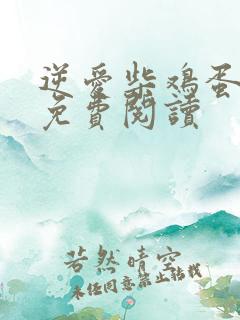 逆愛柴鸡蛋
免費閱讀
若然晴空
未经同意禁止转载